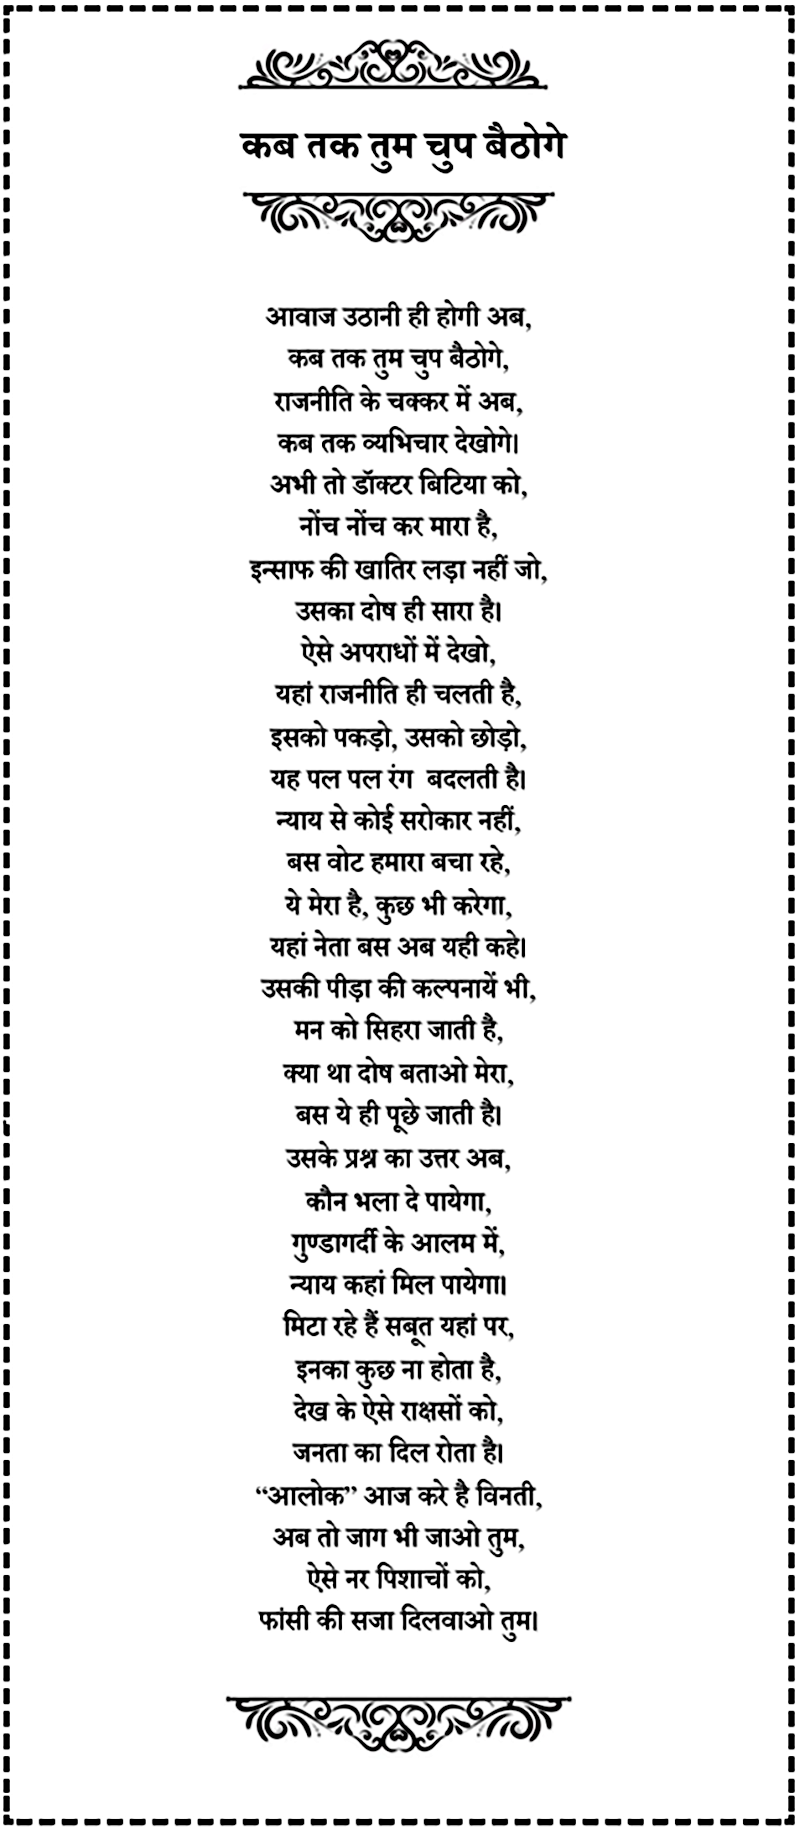 कब तक तुम चुप बैठोगे
आवाज उठानी ही होगी अब,
कब तक तुम चुप बैठोगे,
राजनीति के चक्कर में अब,
कब तक व्यभिचार देखोगे।
अभी तो डॉक्टर बिटिया को,
नोंच नोंच कर मारा है,
इन्साफ की खातिर लड़ा नहीं जो,
उसका दोष ही सारा है।
ऐसे अपराधों में देखो,
यहां राजनीति ही चलती है,
इसको पकड़ो, उसको छोड़ो,
यह पल पल रंग  बदलती है।
न्याय से कोई सरोकार नहीं,
बस वोट हमारा बचा रहे,
ये मेरा है, कुछ भी करेगा,
यहां नेता बस अब यही कहे।
उसकी पीड़ा की कल्पनायें भी,
मन को सिहरा जाती है,
क्या था दोष बताओ मेरा,
बस ये ही पूछे जाती है।
उसके प्रश्न का उत्तर अब,
कौन भला दे पायेगा,
गुण्डागर्दी के आलम में,
न्याय कहां मिल पायेगा।
मिटा रहे हैं सबूत यहां पर,
इनका कुछ ना होता है,
देख के ऐसे राक्षसों को,
जनता का दिल रोता है।
“आलोक” आज करे है विनती,
अब तो जाग भी जाओ तुम,
ऐसे नर पिशाचों को,
फांसी की सजा दिलवाओ तुम।